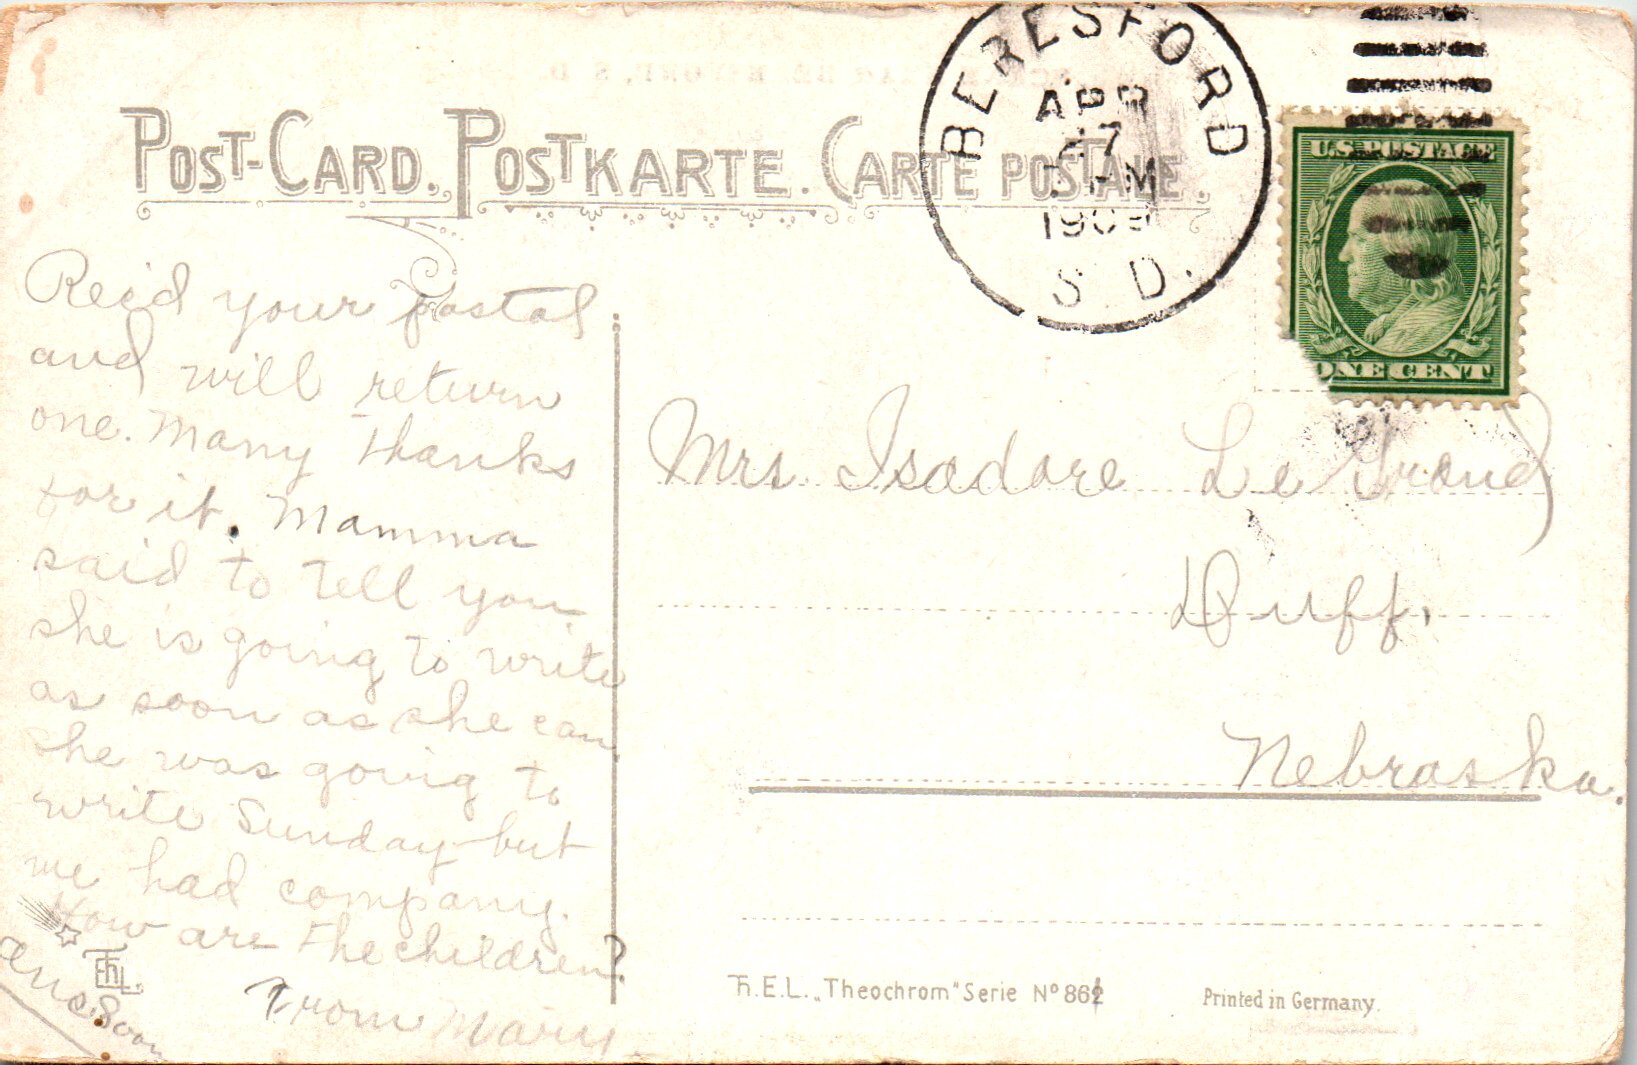 POST-CARD. POSTKARTE. CARTE POSTALE.
BERESFORD
APR
27
M
1909
S. D.
U.S. POSTAGE
ONE CENT
Recd your postal
and will return
one. Many thanks
for it. Mamma
said to tell you
she is going to write
as soon as she can
she was going to
write Sunday but
we had company.
How are the children?
From Mary
ans. Soon
Mrs. Isadore Le Grand
Duff.
Nebraska.
ThEL.
Th.E.L. „Theochrom" Serie Nº 862
Printed in Germany.